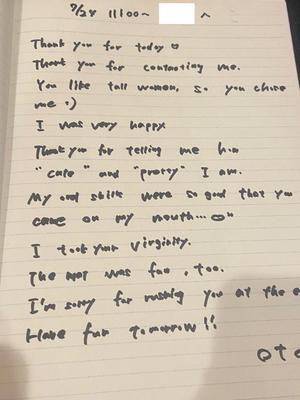 11:00~ へ
Thank you for today ♡
Thank you for contacting me.
You like tall women, so you chose
me :)
I was very happy
Thank you for telling me how
"cute" and "pretty" I am.
My oral skills were so good that you
came on my mouth...
I took your virginity.
The was fun, too.
I'm sorry for rushing you at the
Have fun tomorrow!!